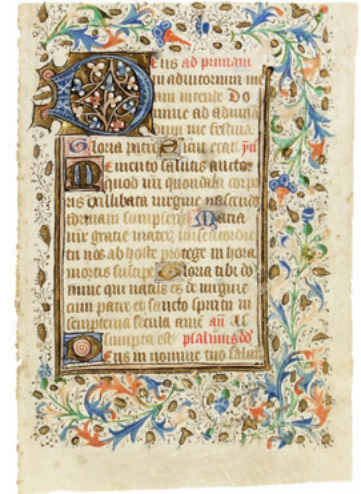 Eus ad primam
in adiutorium me
um intende Do
mine ad adiuua
dum me festina
Gloria patri Sicut erat yñ
Memento salutis auctor
quod nrī quondam corpo
ris exillibata uirgine nascendo
formam sumpseris Maria
mr̄ gratie mater misericordie
tu nos ab hoste protege in hora
mortis suscipe Gloria tibi do
mine qui natus es de uirgine
cum patre et sancto spiritu in
sempiterna secula ame añ As
sumpta est psalmus dd
Deus in nomine tuo saluū